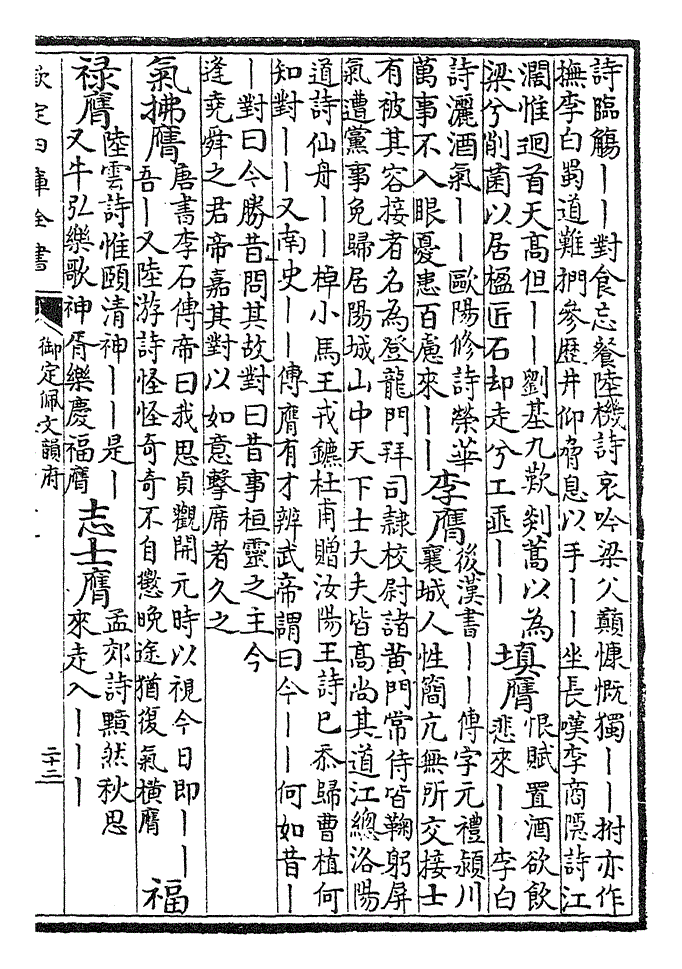 詩臨觴——對食忘餐陸機詩哀吟梁父顛慷慨獨——拊亦作
撫李白蜀道難捫參歷井仰脅息以手——坐長嘆李商隱詩江
濶惟迴首天髙但——劉基九歎剡蒿以為
梁兮削菌以居楹匠石却走兮工垂——
填膺
恨賦置酒欲飲
悲來——李白
詩灑酒氣——歐陽修詩榮華
萬事不入眼憂患百慮來——
李膺
後漢書——傳字元禮潁川
襄城人性簡亢無所交接士
有被其容接者名為登龍門拜司隸校尉諸黄門常侍皆鞠躬屏
氣遭黨事免歸居陽城山中天下士大夫皆髙尚其道江總洛陽
道詩仙舟——棹小馬王戎鑣杜甫贈汝陽王詩已忝歸曹植何
知對——又南史——傳膺有才辨武帝謂曰今——何如昔—
—對曰今勝昔問其故對曰昔事桓靈之主今
逢堯舜之君帝嘉其對以如意擊席者久之
氣拂膺
唐書李石傳帝曰我思貞觀開元時以視今日即——
吾—又陸游詩怪怪奇奇不自懲晚途猶復氣橫膺
福
祿膺
陸雲詩惟頤清神——是—
又牛弘樂歌神胥樂慶福膺
志士膺
孟郊詩黯然秋思
來走入———
欽定四庫全書
御定佩文韻府
二十二